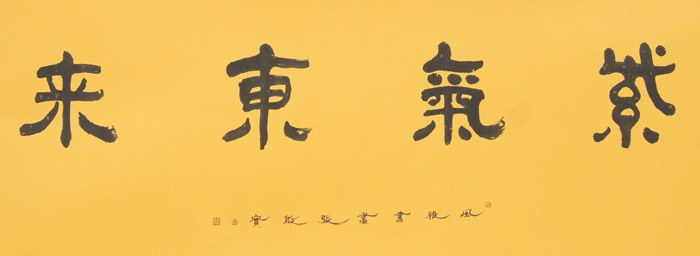 紫氣東来
風雅書畫張殷實